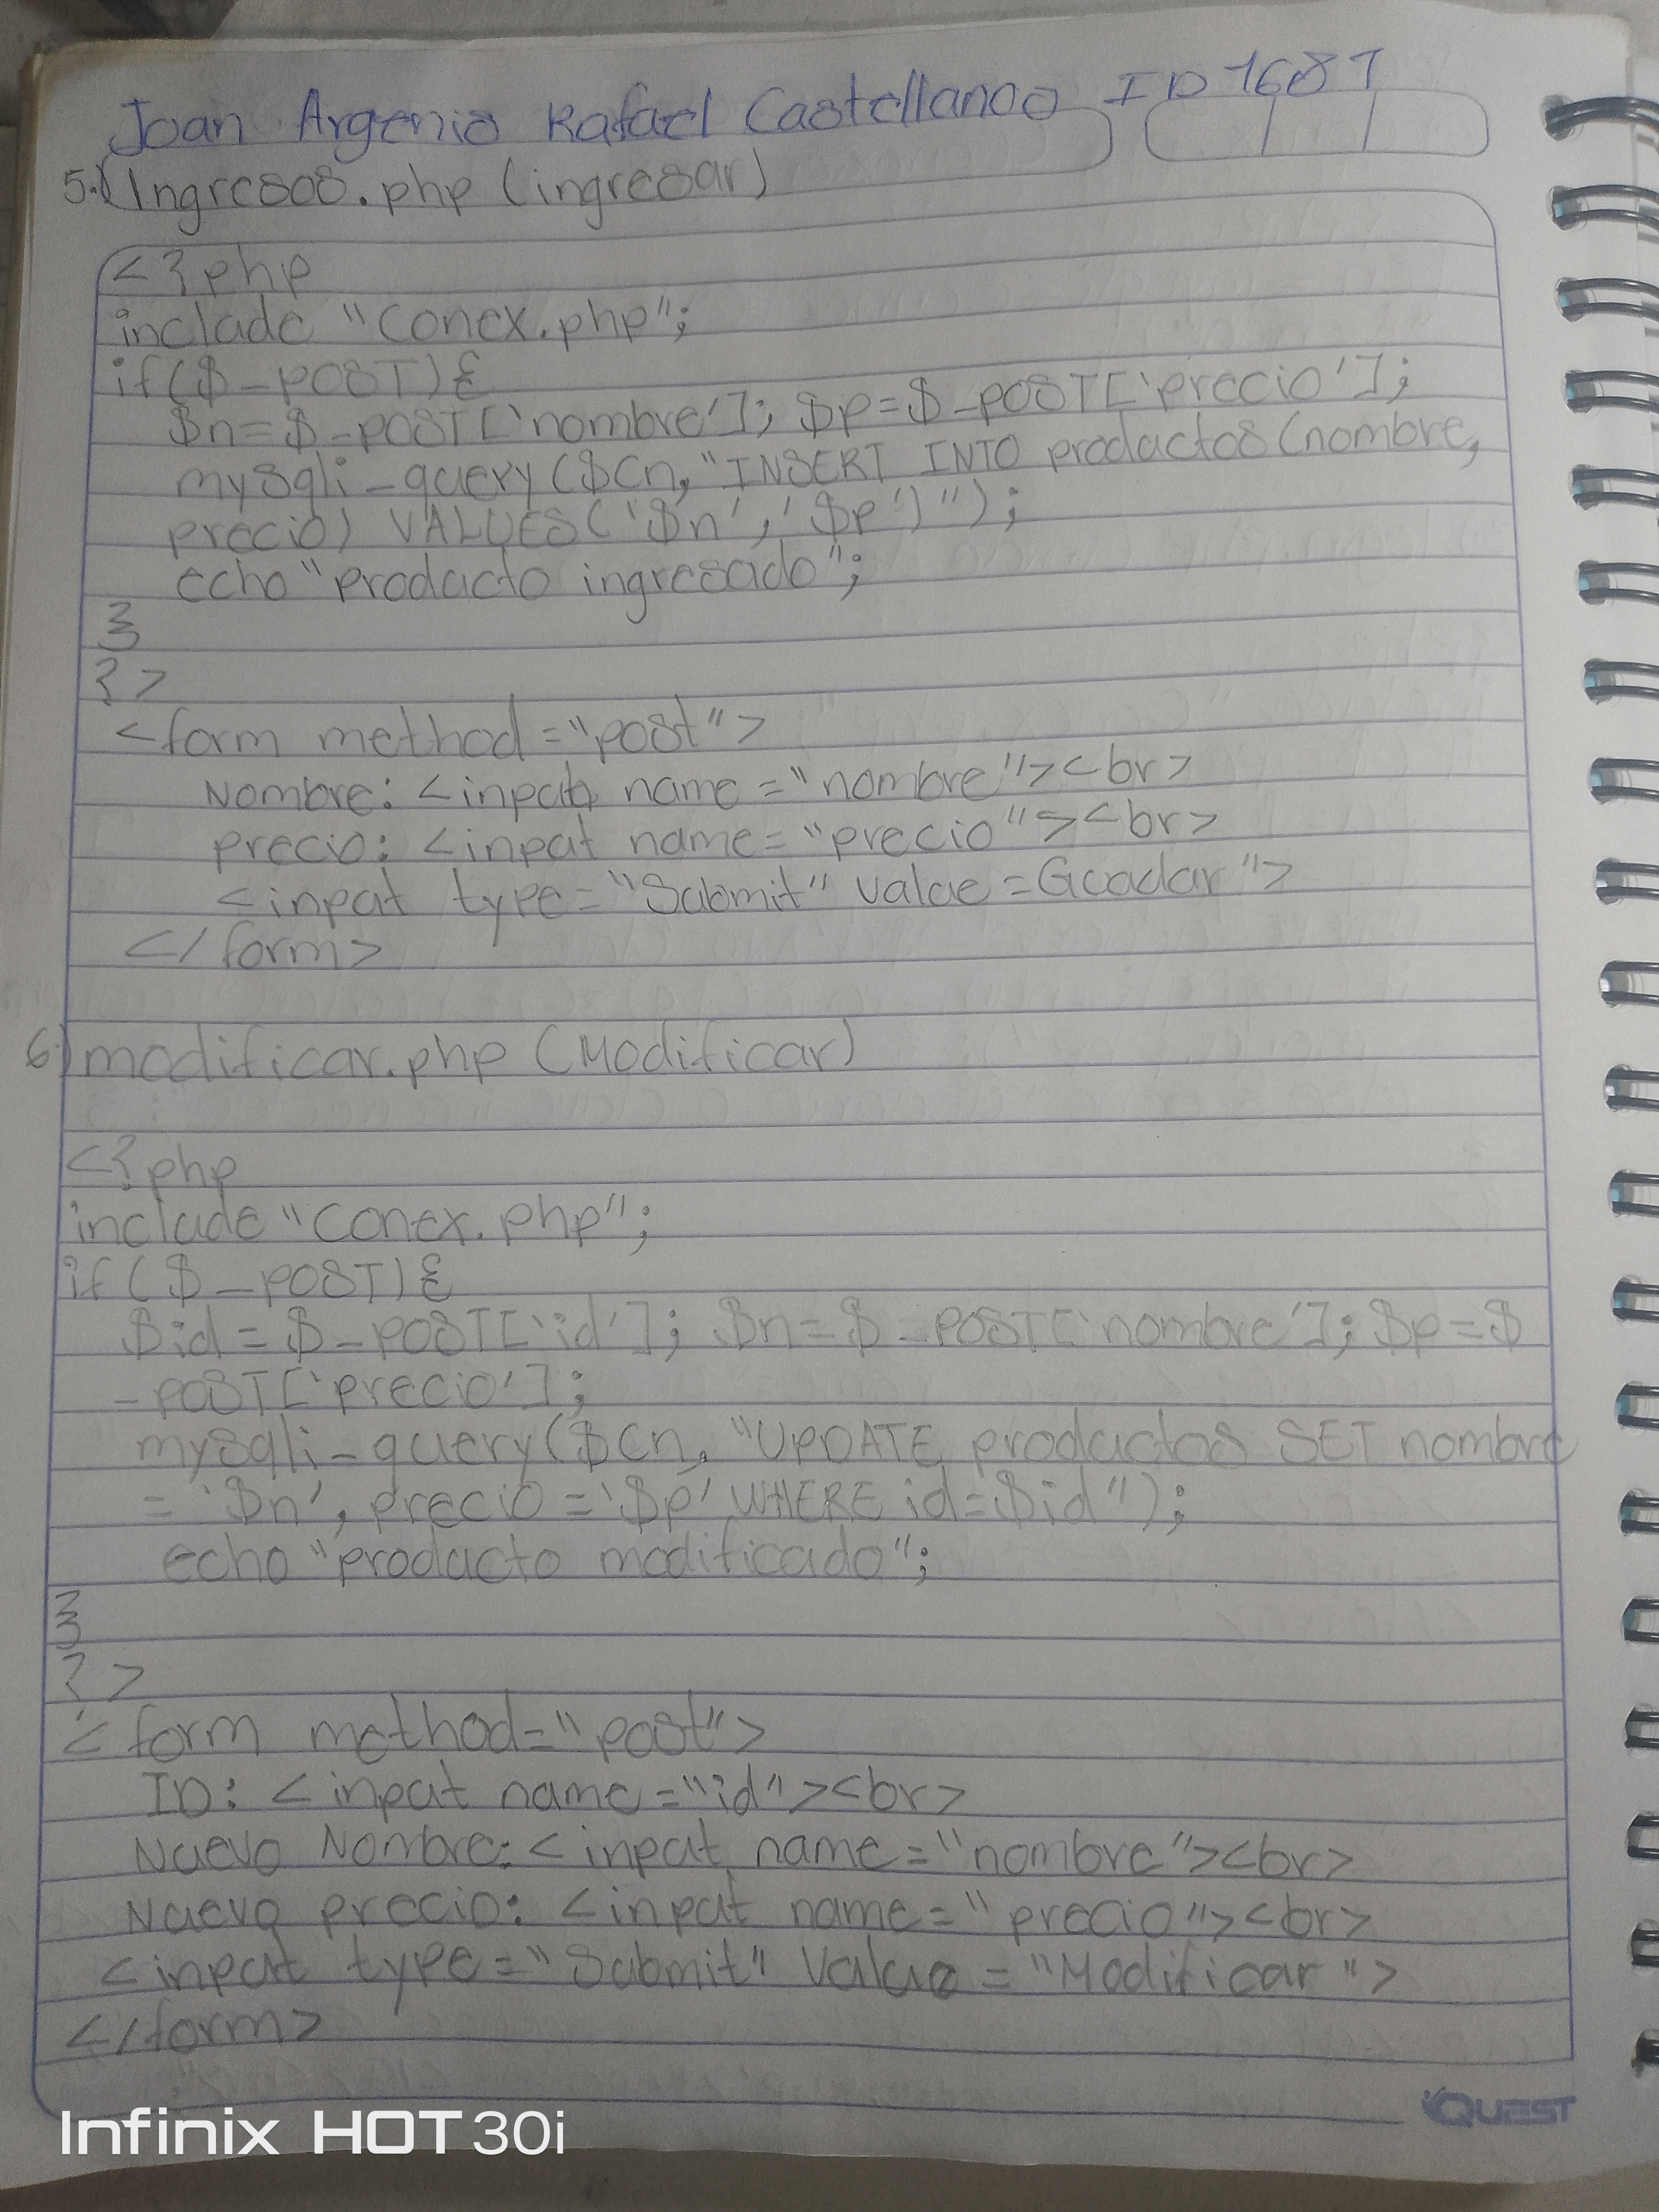 Joan Argenis Rafael Castellanos ID 7687
5.) Ingresos.php (ingresar)
<?php
include "Conex.php";
if($_POST){
$n=$_POST['nombre']; $p=$_POST['precio'];
mysqli_query($Cn,"INSERT INTO productos(nombre,
precio) VALUES('$n','$p')");
echo "producto ingresado";
}
?>
<form method="post">
Nombre: <input name="nombre"><br>
precio: <input name="precio"><br>
<input type="Submit" value=Guadar">
</form>
6.) modificar.php (Modificar)
<?php
include "Conex.php";
if($_POST){
$id=$_POST['id']; $n=$_POST['nombre']; $p=$
_POST['precio'];
mysqli_query($Cn, "UPDATE productos SET nombre
= '$n', precio='$p' WHERE id=$id");
echo "producto modificado";
}
?>
<form method="post">
ID: <input name="id"><br>
Nuevo Nombre: <input name="nombre"><br>
Nuevo precio: <input name="precio"><br>
<input type="Submit" Value="Modificar">
</form>
QUEST
Infinix HOT 30i